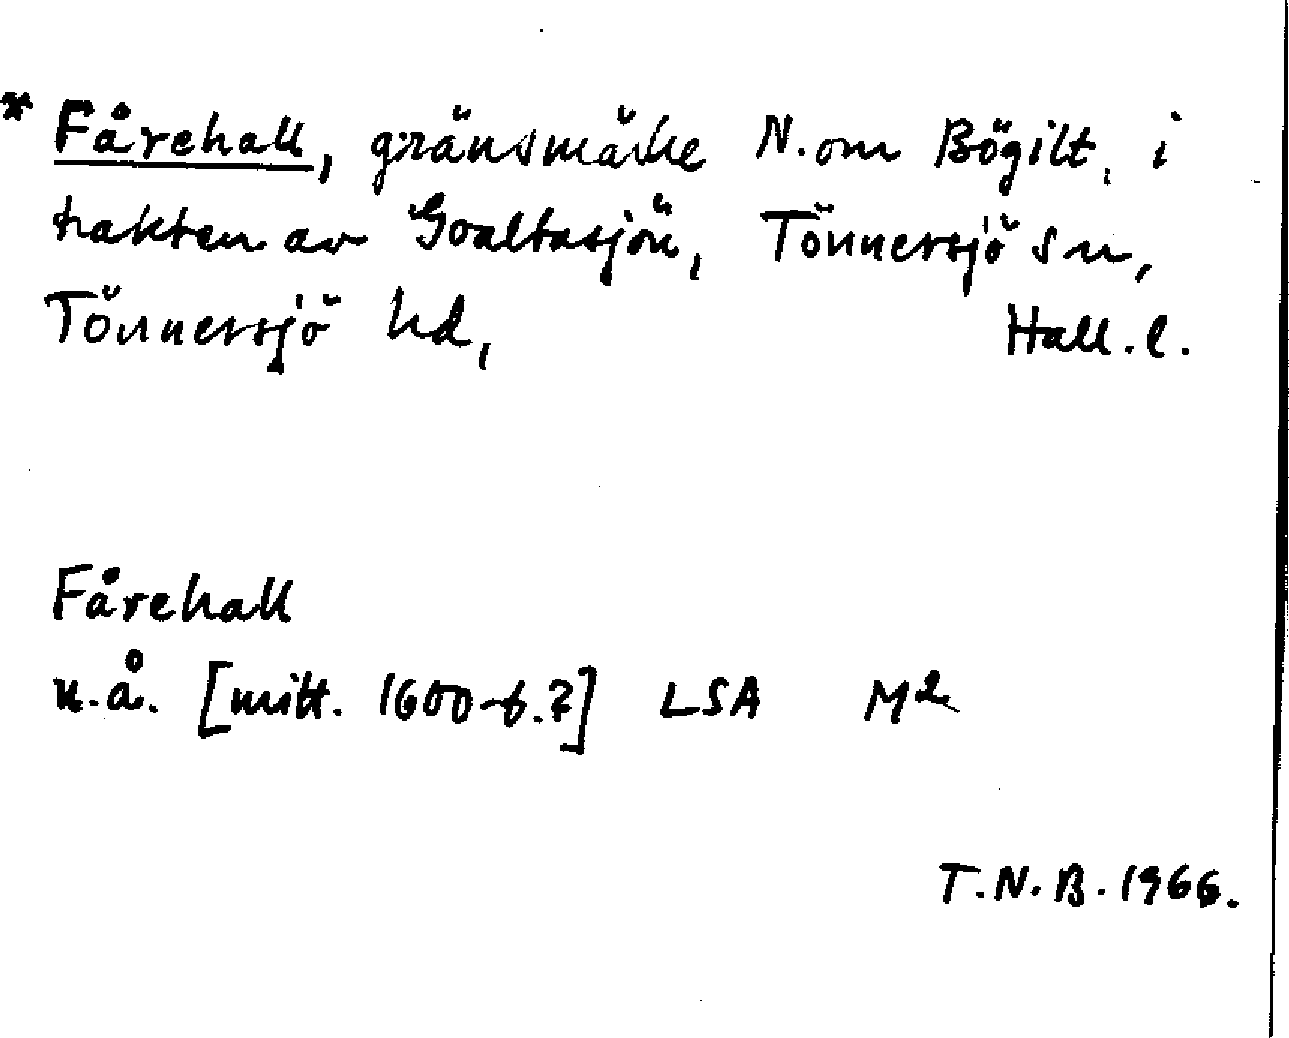 * Fårehall, gränsmärke N. om Bögilt, i
trakten av Goaltasjön, Tönnersjö sn,
Tönnersjö hd, Hall. l.
Fårehall
u.å. [mitt. 1600-t.?] LSA M²
T.N.B. 1966.